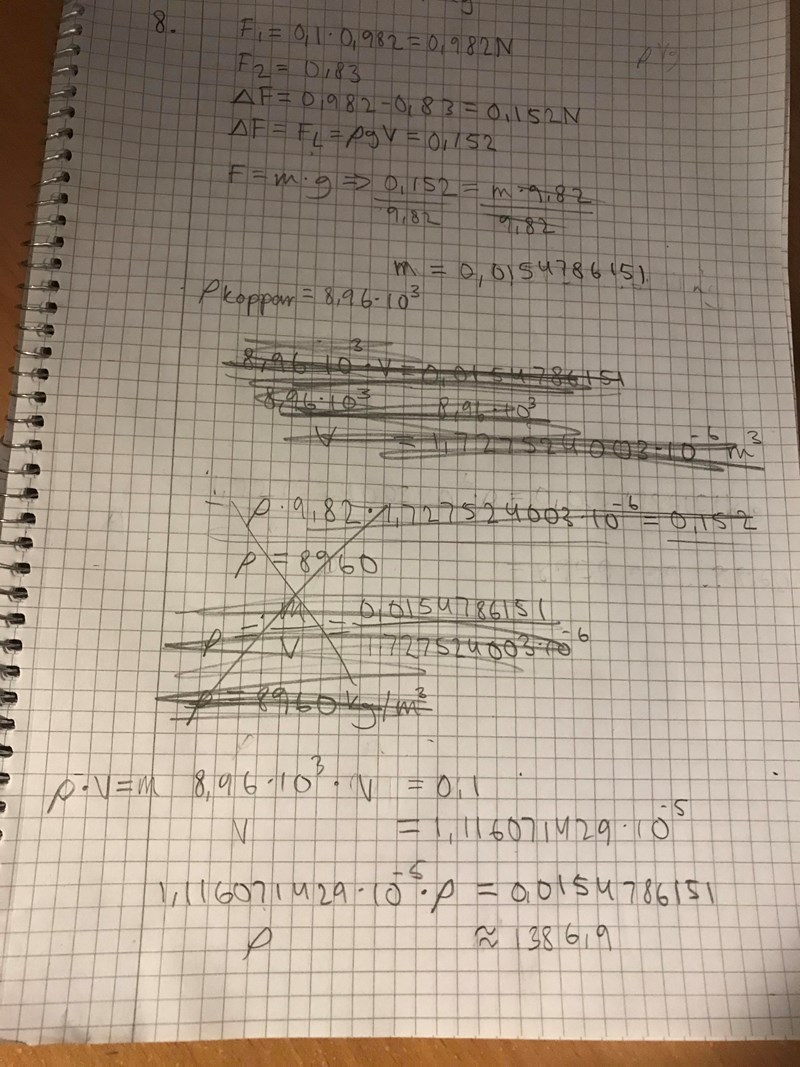 8. F₁ = 0,1 · 0,982 = 0,982N
F₂ = 0,83
ΔF = 0,982 - 0,83 = 0,152N
ΔF = F_L = ρgV = 0,152
F = m · g ⇒ 0,152 = m · 9,82
9,82 9,82
m = 0,0154786151
ρkoppar = 8,96 · 10³
8,96 · 10³ · V = 0,0154786151
8,96 · 10³ 8,96 · 10³
V = 1,727524003 · 10⁻⁶ m³
ρ · 9,82 · 1,727524003 · 10⁻⁶ = 0,152
ρ = 8960
ρ = m/V = 0,0154786151 / 1,727524003 · 10⁻⁶
ρ = 8960 kg/m³
ρ · V = m 8,96 · 10³ · V = 0,1
V = 1,116071429 · 10⁻⁵
1,116071429 · 10⁻⁵ · ρ = 0,0154786151
ρ ≈ 1386,9